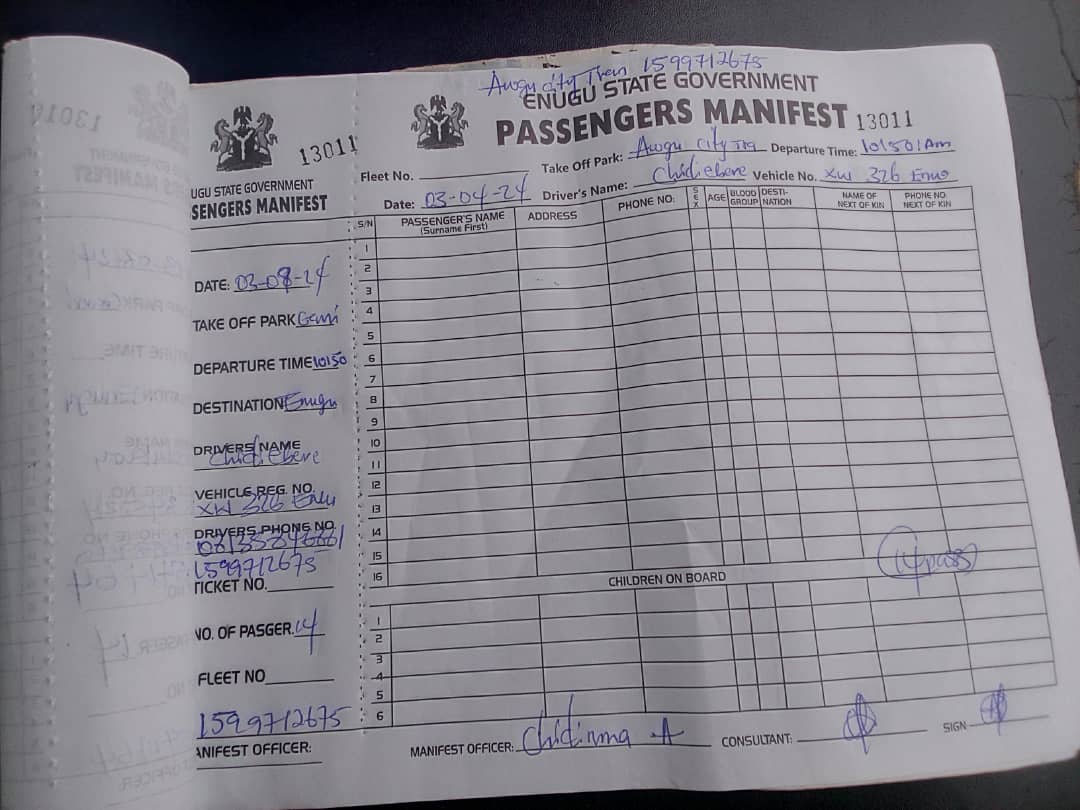 13011
UGU STATE GOVERNMENT
SENGERS MANIFEST
DATE: 03-08-24
TAKE OFF PARK Gari
DEPARTURE TIME 10:50
DESTINATION Enugu
DRIVERS NAME
Chidiebere
VEHICLE REG. NO.
XW 326 Enu
DRIVERS PHONE NO.
1599712675
TICKET NO.
NO. OF PASGER. 14
FLEET NO
1599712675
ANIFEST OFFICER:
Awgu city Tran 1599712675
ENUGU STATE GOVERNMENT
PASSENGERS MANIFEST 13011
Fleet No. Take Off Park: Awgu City Tra Departure Time: 10:50:Am
Date: 03-04-24 Driver's Name: Chidiebere Vehicle No. XW 326 Enu
S/N PASSENGER'S NAME (Surname First) ADDRESS PHONE NO: SEX AGE BLOOD GROUP DESTI-NATION NAME OF NEXT OF KIN PHONE NO. NEXT OF KIN
1
2
3
4
5
6
7
8
9
10
11
12
13
14
15
16
14 pass
CHILDREN ON BOARD
1
2
3
4
5
6
MANIFEST OFFICER: Chidinma A CONSULTANT: SIGN